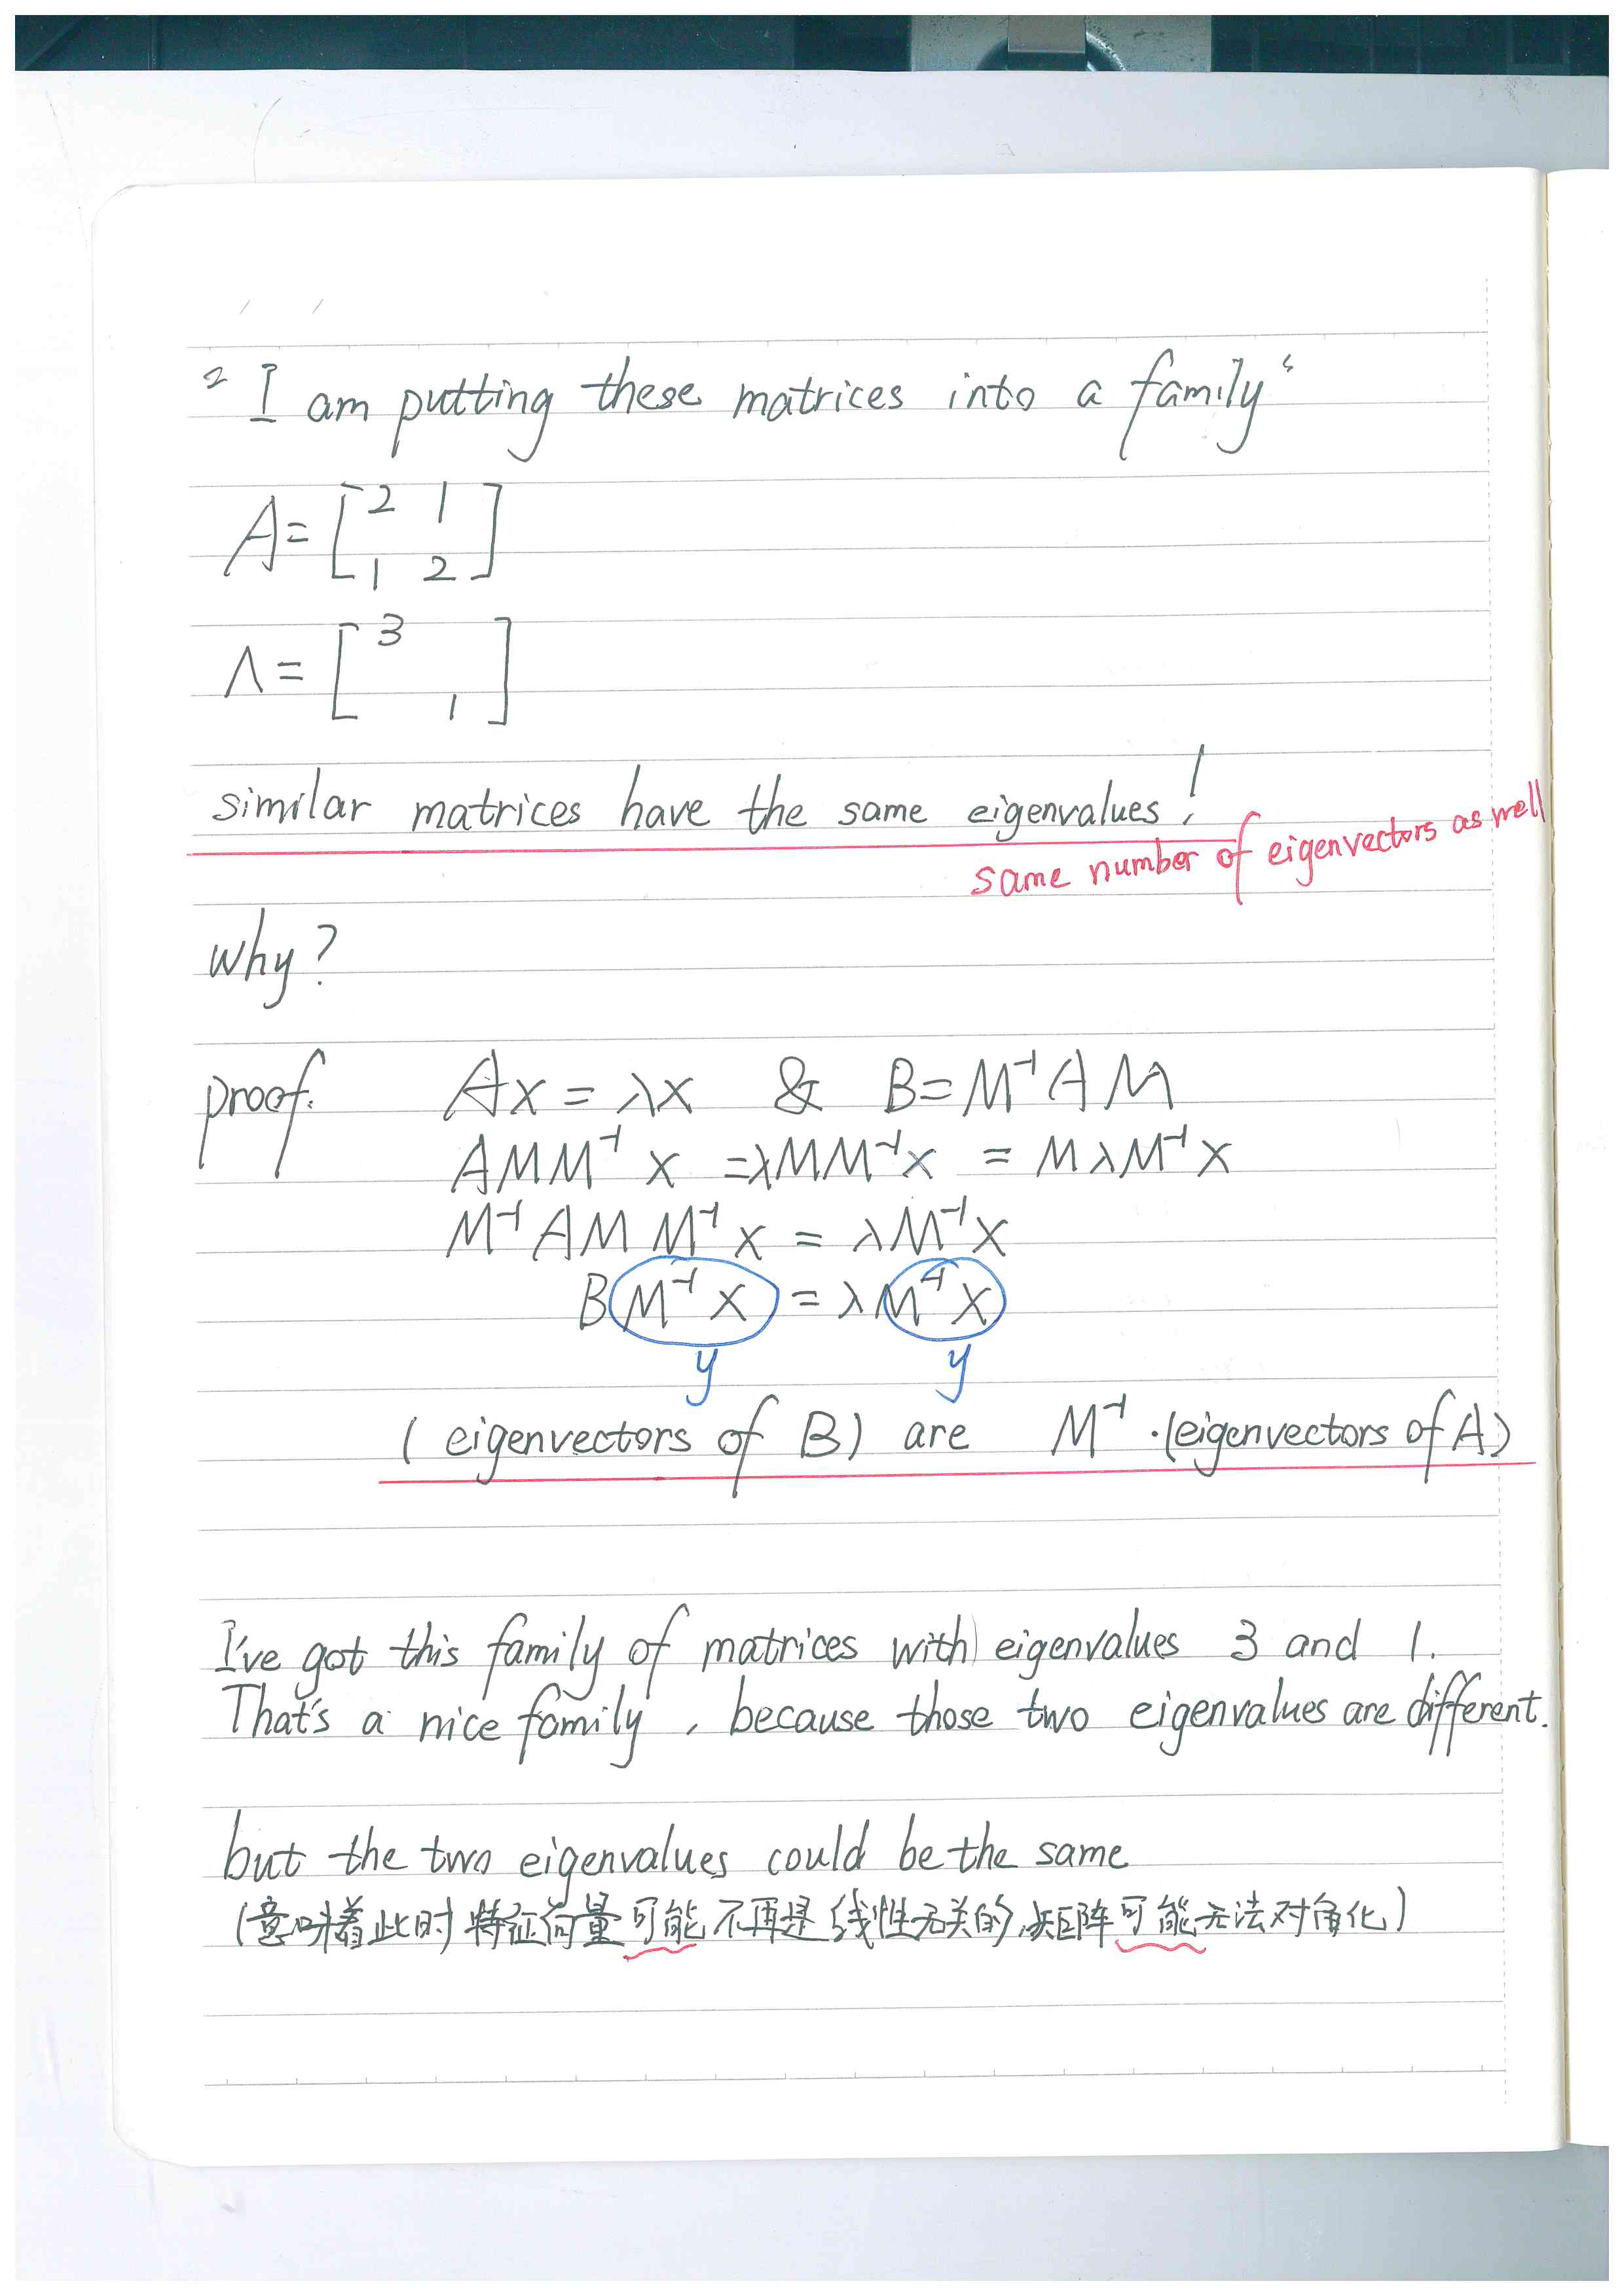 "I am putting these matrices into a family"
A = [ 2 1
1 2 ]
Λ = [ 3
1 ]
similar matrices have the same eigenvalues!
same number of eigenvectors as well
why?
proof: Ax = λx & B = M⁻¹AM
AMM⁻¹x = λMM⁻¹x = MλM⁻¹x
M⁻¹AMM⁻¹x = λM⁻¹x
BM⁻¹x = λM⁻¹x
y y
(eigenvectors of B) are M⁻¹·(eigenvectors of A)
I've got this family of matrices with eigenvalues 3 and 1.
That's a nice family, because those two eigenvalues are different.
but the two eigenvalues could be the same
(意味着此时特征向量可能不再是线性无关的,矩阵可能无法对角化)